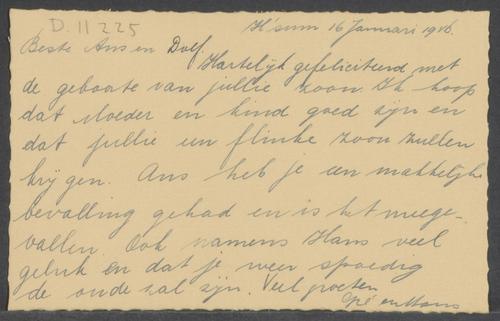 D.11225
H'sum 16 Januari 1946.
Beste Ans en Dolf.
Hartelijk gefeliciteerd met
de geboorte van jullie zoon. Ik hoop
dat Moeder en kind goed zijn en
dat jullie een flinke zoon zullen
krijgen. Ans heb je een makkelijke
bevalling gehad en is het meege-
vallen. Ook namens Hans veel
geluk en dat je weer spoedig
de oude zal zijn. Veel groeten
en Hans